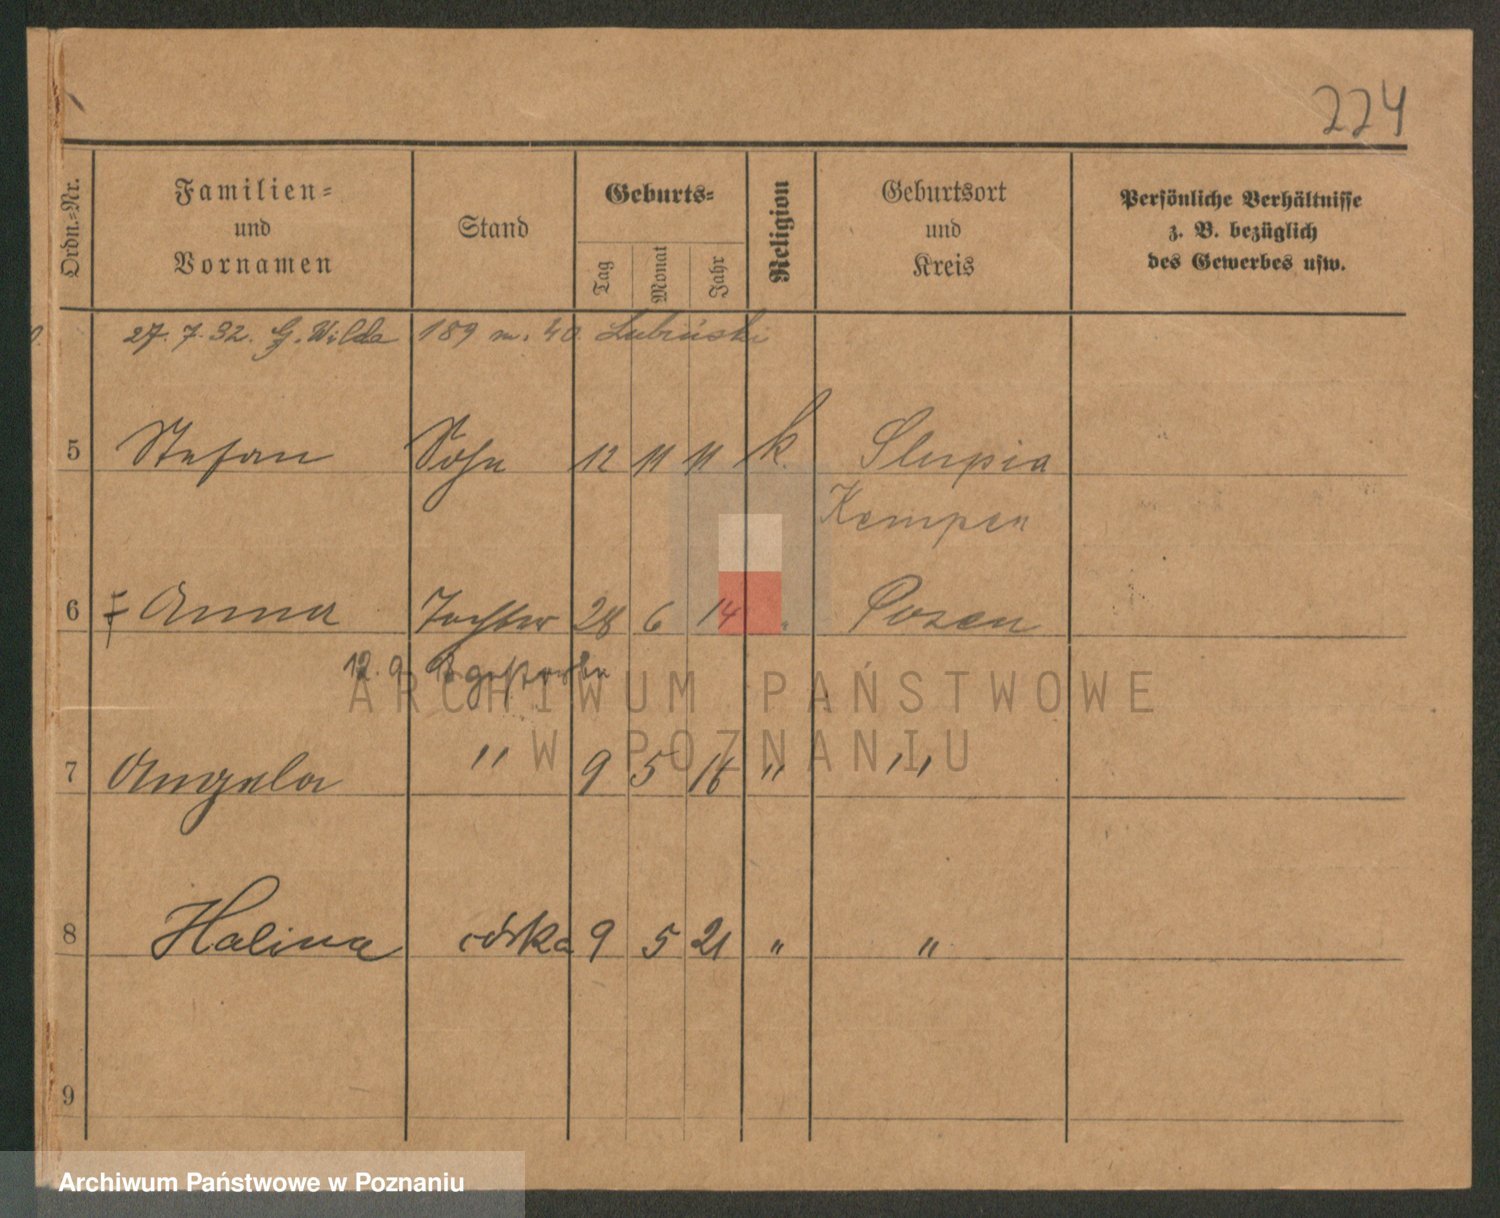 224
Ordn.-Nr.
Familien- und Vornamen
Stand
Geburts-
Tag
Monat
Jahr
Religion
Geburtsort und Kreis
Persönliche Verhältnisse z. B. bezüglich des Gewerbes usw.
27. 7. 32. G. Wilda 189 m. 40 Lubiński
5 Stefan Sohn 12 11 11 k. Slupia
Kempen
6 Anna Tochter 28 6 14 " Posen
12. 9. gestorben
7 Angela " 9 5 16 " "
8 Halina córka 9 5 21 " "
9
ARCHIWUM PAŃSTWOWE
W POZNANIU
Archiwum Państwowe w Poznaniu